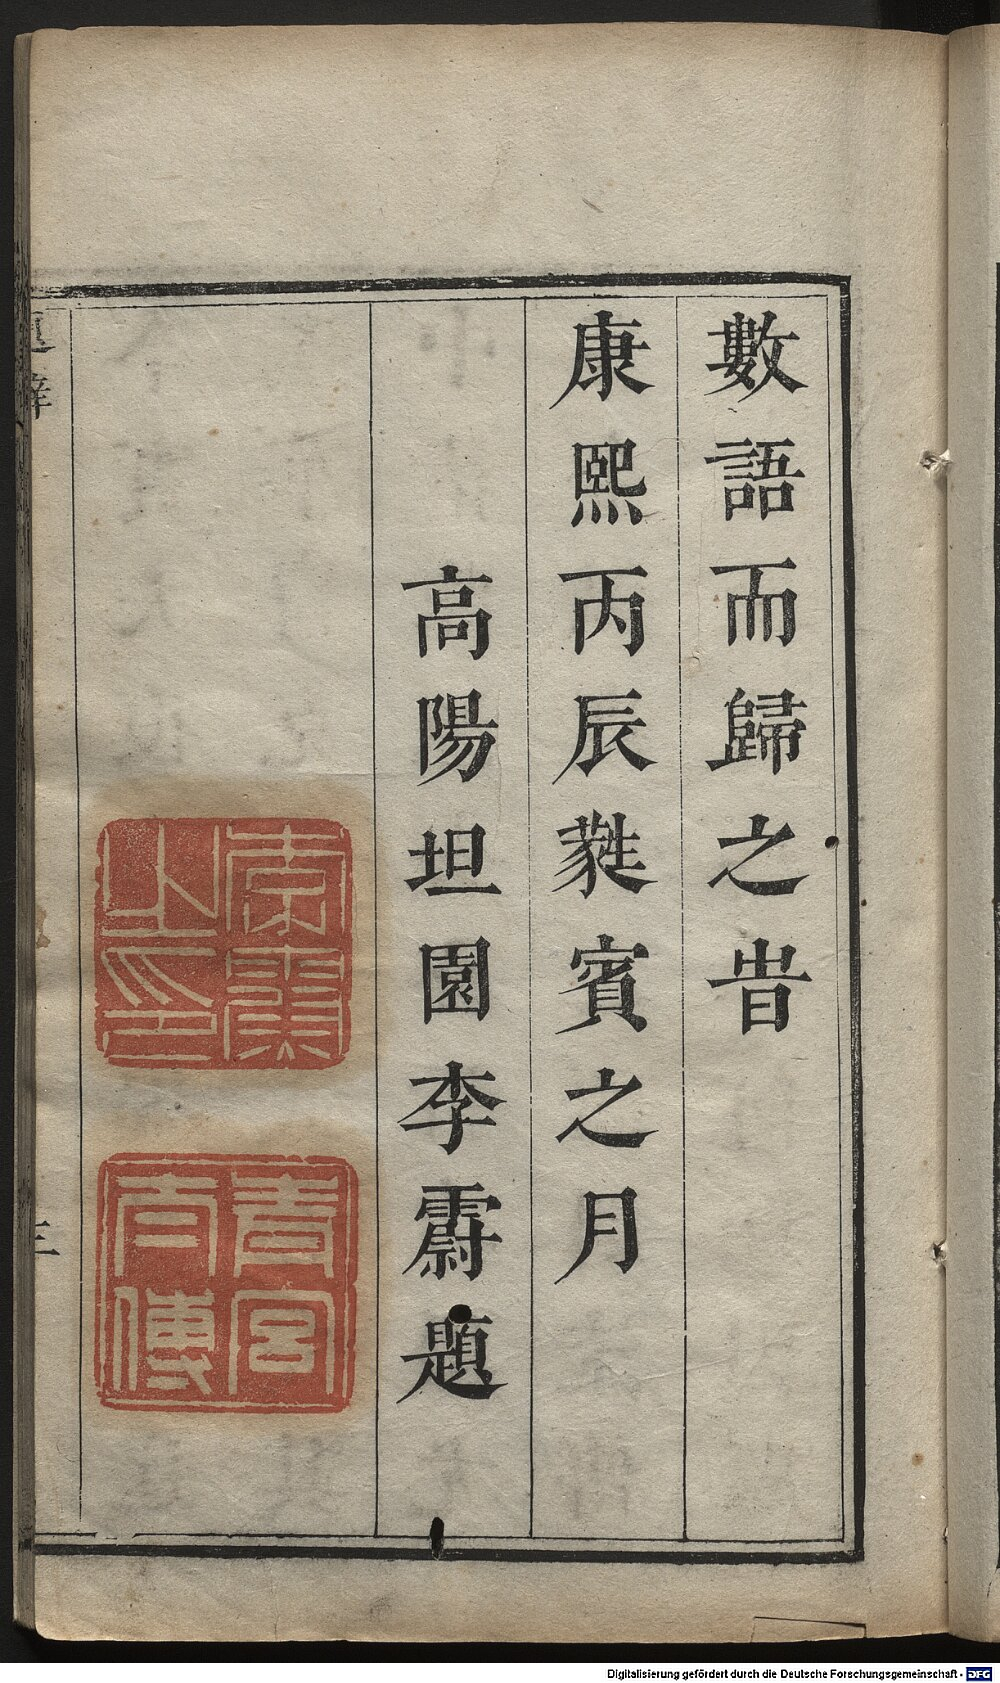 數語而歸之旹
康熙丙辰蕤賓之月
高陽坦園李霨題
李霨之印
青宮太傅
三
Digitalisierung gefördert durch die Deutsche Forschungsgemeinschaft - DFG